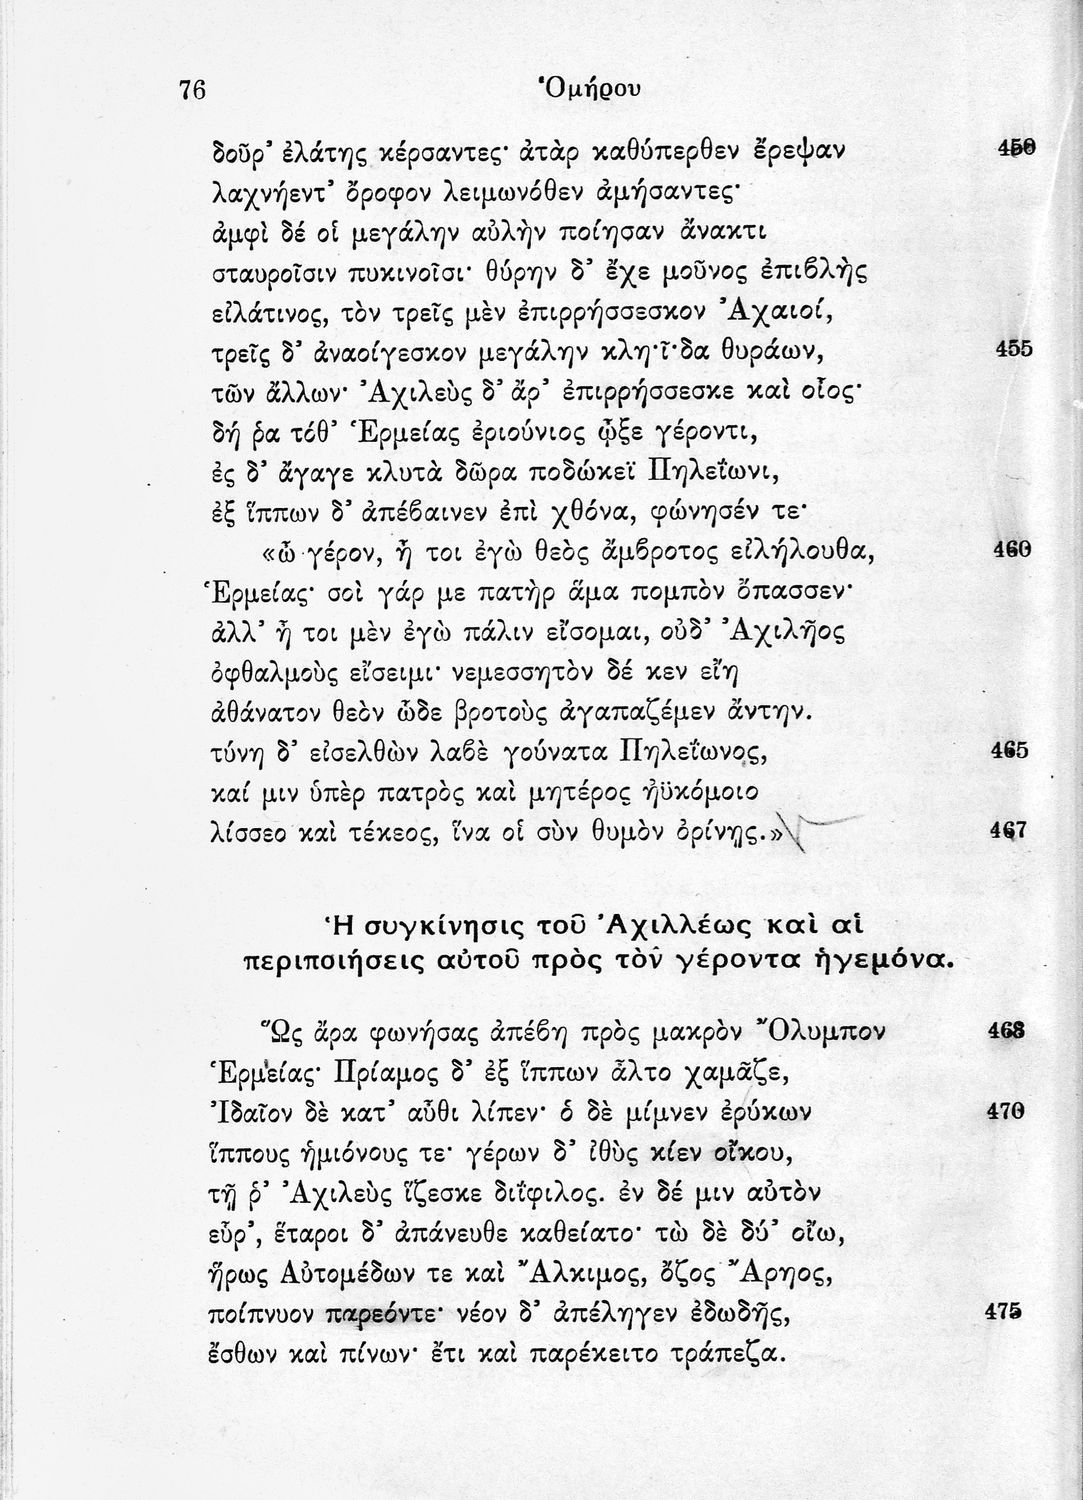 76 Ὁμήρου
δοῦρ’ ἐλάτης κέρσαντες· ἀτὰρ καθύπερθεν ἔρεψαν 450
λαχνήεντ’ ὄροφον λειμωνόθεν ἀμήσαντες·
ἀμφὶ δέ οἱ μεγάλην αὐλὴν ποίησαν ἄνακτι
σταυροῖσιν πυκινοῖσι· θύρην δ’ ἔχε μοῦνος ἐπιβλὴς
εἰλάτινος, τὸν τρεῖς μὲν ἐπιρρήσσεσκον Ἀχαιοί,
τρεῖς δ’ ἀναοίγεσκον μεγάλην κλη·ῖ·δα θυράων, 455
τῶν ἄλλων· Ἀχιλεὺς δ’ ἄρ’ ἐπιρρήσσεσκε καὶ οἶος·
δή ῥα τόθ’ Ἑρμείας ἐριούνιος ᾦξε γέροντι,
ἐς δ’ ἄγαγε κλυτὰ δῶρα ποδώκεϊ Πηλεΐωνι,
ἐξ ἵππων δ’ ἀπέβαινεν ἐπὶ χθόνα, φώνησέν τε·
«ὦ γέρον, ἦ τοι ἐγὼ θεὸς ἄμβροτος εἰλήλουθα, 460
Ἑρμείας· σοὶ γάρ με πατὴρ ἅμα πομπὸν ὄπασσεν·
ἀλλ’ ἦ τοι μὲν ἐγὼ πάλιν εἴσομαι, οὐδ’ Ἀχιλῆος
ὀφθαλμοὺς εἴσειμι· νεμεσσητὸν δέ κεν εἴη
ἀθάνατον θεὸν ὧδε βροτοὺς ἀγαπαζέμεν ἄντην.
τύνη δ’ εἰσελθὼν λαβὲ γούνατα Πηλεΐωνος, 465
καί μιν ὑπὲρ πατρὸς καὶ μητέρος ἠϋκόμοιο
λίσσεο καὶ τέκεος, ἵνα οἱ σὺν θυμὸν ὀρίνῃς.» 467
Ἡ συγκίνησις τοῦ Ἀχιλλέως καὶ αἱ
περιποιήσεις αὐτοῦ πρὸς τὸν γέροντα ἡγεμόνα.
Ὣς ἄρα φωνήσας ἀπέβη πρὸς μακρὸν Ὄλυμπον 468
Ἑρμείας· Πρίαμος δ’ ἐξ ἵππων ἆλτο χαμᾶζε,
Ἰδαῖον δὲ κατ’ αὖθι λίπεν· ὁ δὲ μίμνεν ἐρύκων 470
ἵππους ἡμιόνους τε· γέρων δ’ ἰθὺς κίεν οἴκου,
τῇ ῥ’ Ἀχιλεὺς ἵζεσκε διΐφιλος. ἐν δέ μιν αὐτὸν
εὗρ’, ἕταροι δ’ ἀπάνευθε καθείατο· τὼ δὲ δύ’ οἴω,
ἥρως Αὐτομέδων τε καὶ Ἄλκιμος, ὄζος Ἄρηος,
ποίπνυον παρεόντε· νέον δ’ ἀπέληγεν ἐδωδῆς, 475
ἔσθων καὶ πίνων· ἔτι καὶ παρέκειτο τράπεζα.